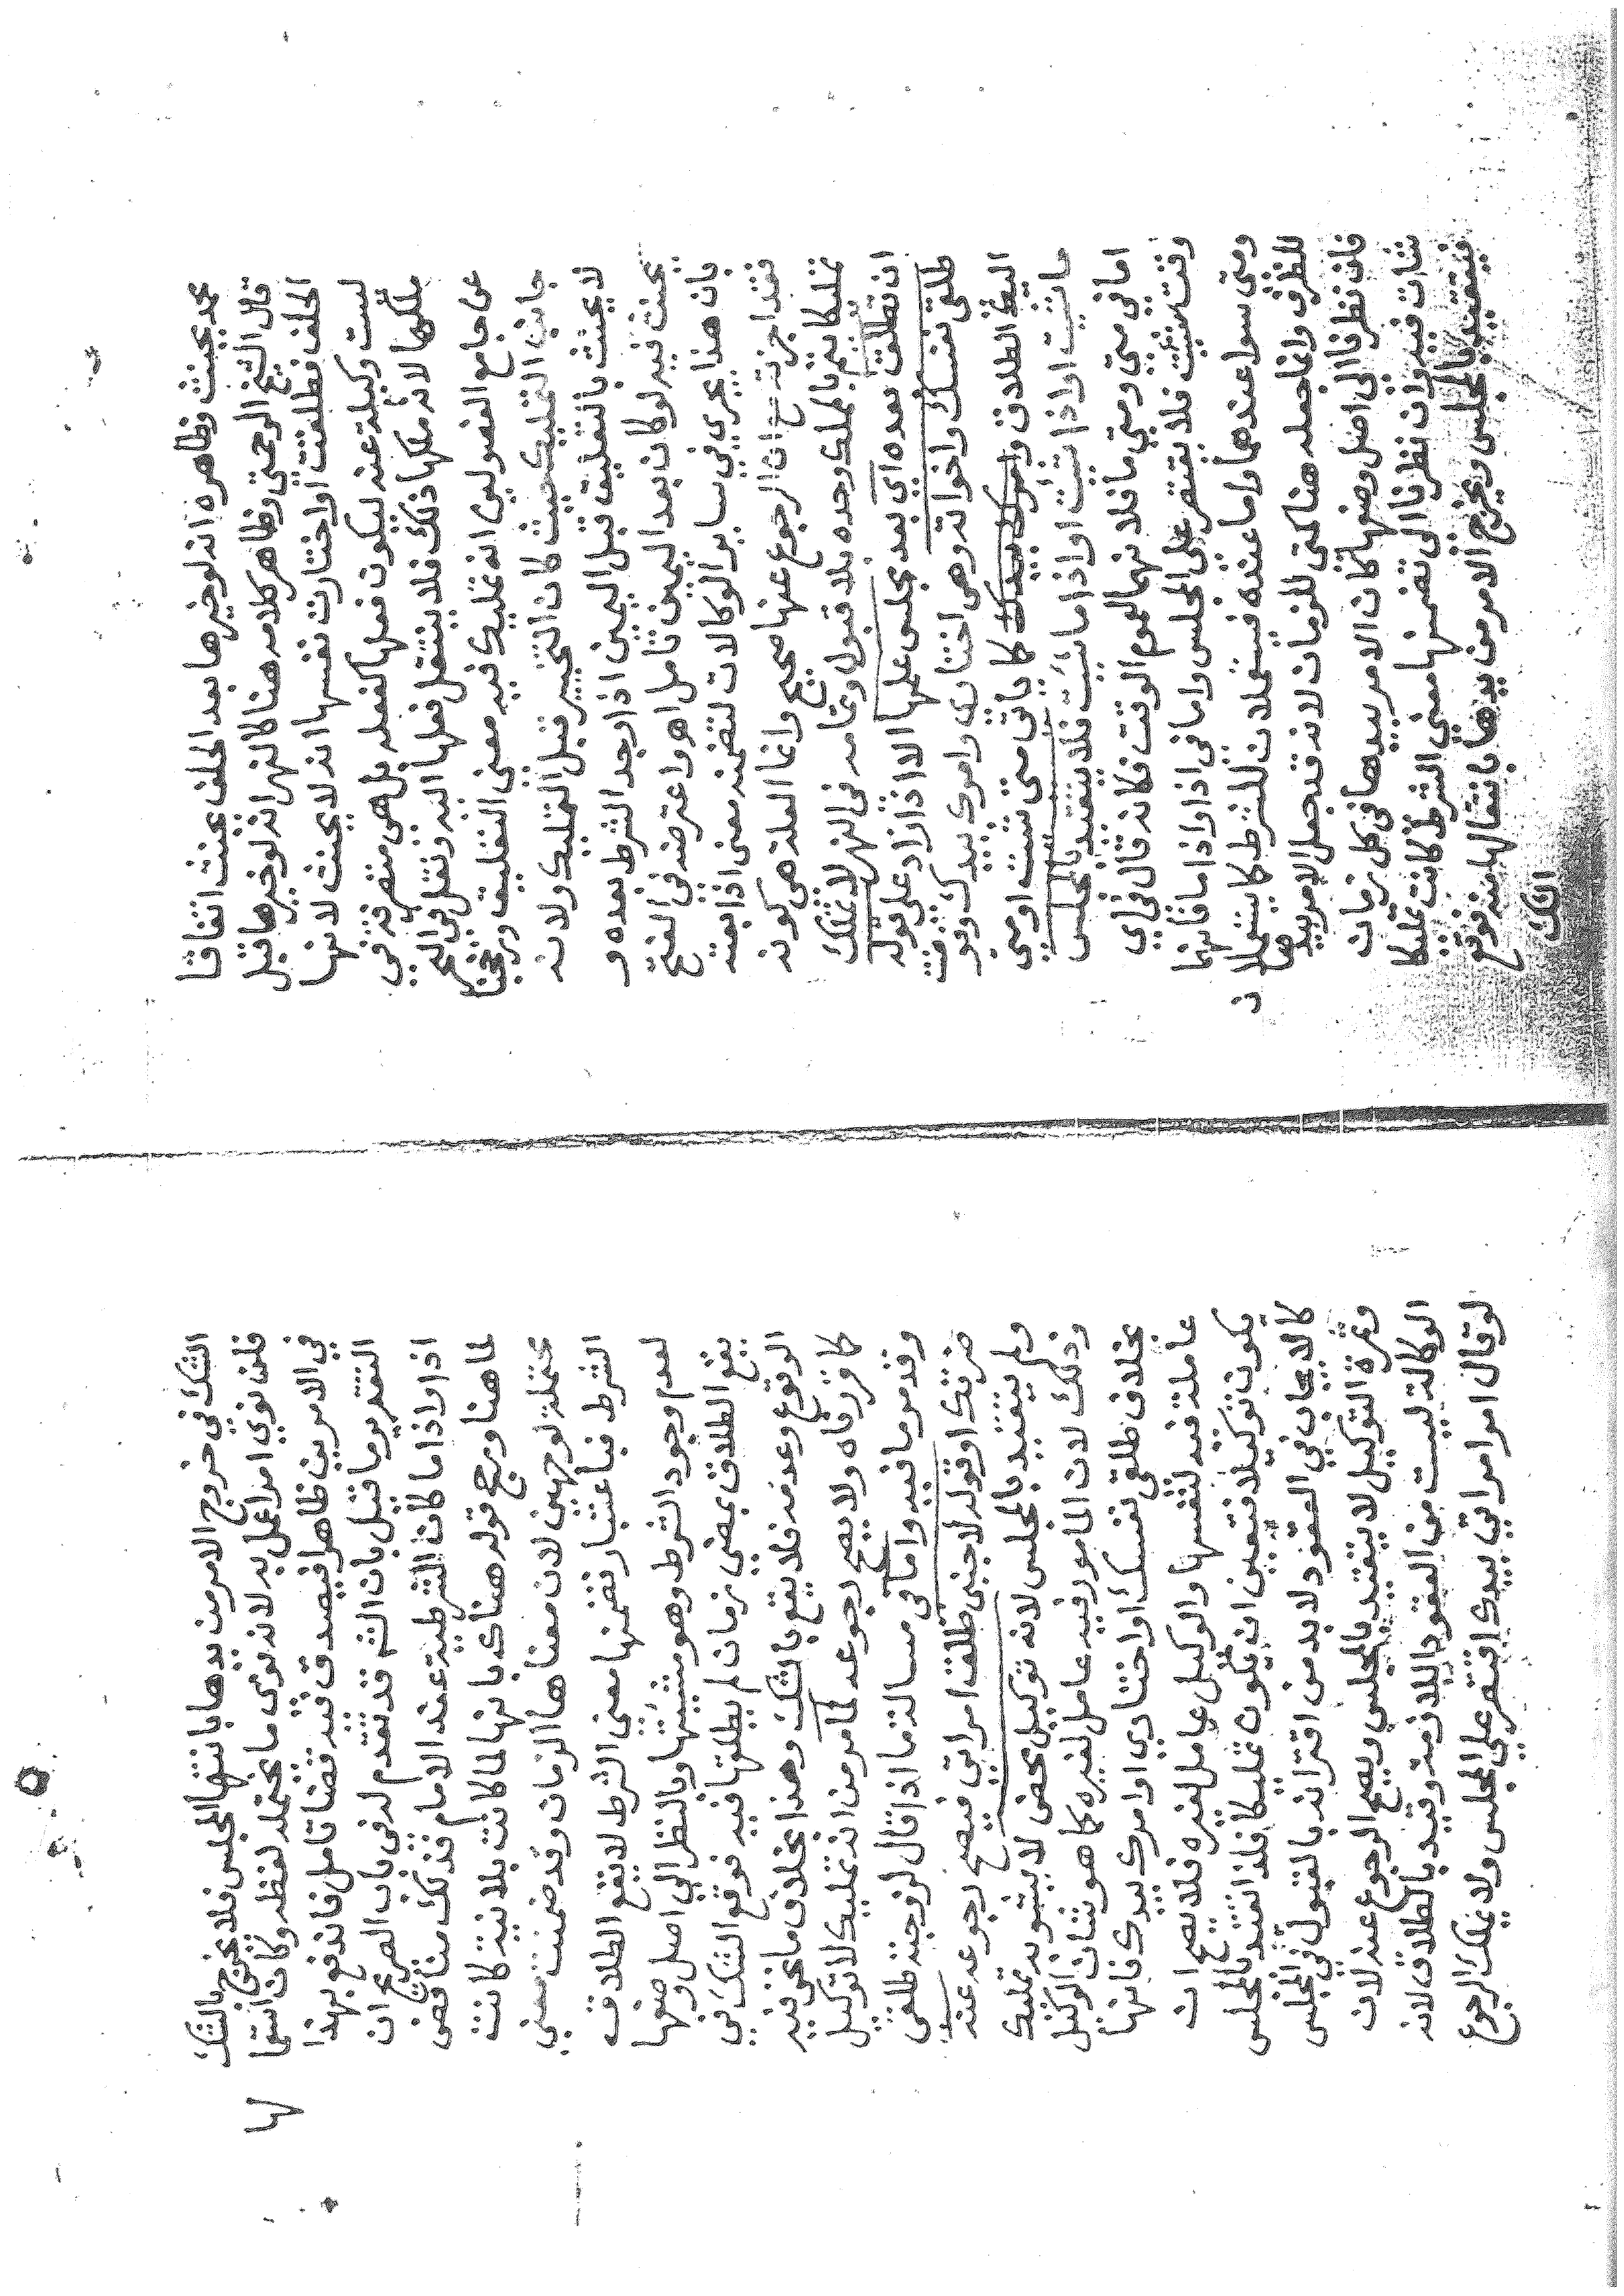 محمد يحنث وظاهره انه لو خيرها بعد الحلف يحنث اتفاقا
قال الشيخ الرحمتي وظاهر كلامه هنا كالنهر انه لو خيرها قبل
الحلف فطلقت او اختارت نفسها انه لا يحنث لانها
ليست وكيلة عنه ليكون فعلها كفعله بل هي متصرفة في
ملكها لانه ملكها ذلك فلا ينتقل فعلها اليه ونقل في البحر
عن جامع الفصولين انه تمليك فيه معنى التعليق ورجحنا
جانب التمليك حيث كان التخيير قبل التمليك ولانه
لا يحنث بالتعليق قبل اليمين اذا وجد الشرط بعده و
يحنث فيه لو كان بعد اليمين تامل اهـ واعترضه في الفتح
بان هذا يجري في ساير الوكالات لتضمنه معنى اذا بعته
فقد اجزته مع ان الرجوع عنها صحيح وانما العلة هي كونه
تمليكا يتم بالملك وحده بلا قبول وتمامه في النهر لا تملك
ان تطلق بعده اي بعد مجلس علمها الا اذا زاد على قوله
طلقي نفسك واخواته وهي اختاري وامرك بيدك وفو
اليك الطلاق وامرك بيدك كما ياتي متى شئت او متى
ما شئت او اذا شئت او اذا ما شئت فلا يتقيد بالمجلس
اما في متى ومتى ما فلانهما لعموم الوقت فكانه قال في اي
وقت شئت فلا يقتصر على المجلس واما في اذا واذا ما فانهما
ومتى سواء عندهما واما عنده فيستعملان للشرط كما يستعملان
للظرف وانما جعله هنا كمتى للزمان لانه قد جعل الامر بيدها
فان نظرنا الى اصل وضعها كان الامر بيدها في كل زمان
شات فيه وان نظرنا الى تضمنها معنى الشرط كانت تمليكا
فيتقيد بالمجلس ويخرج الامر من يدها بانتقالها منه فوقع
الشك
الشك في خروج الامر من يدها بانتهاء المجلس فلا يخرج بالشك
فلن نوى امرا عمل به لانه نوى ما يحتمله لفظه وكان انتفا
لها
في الامرين ظاهرا فيصدق فيه قضا تامل فاندفع بهذا
التقرير ما قيل بان الشم قد تقدم له في باب الصريح ان
اذا واذا ما كان الشرطية عند الامام فذلك مناقض
لما هنا ورجح قوله هناك بانها لما كانت بلا نية كانت
محتملة لوجهين لان معناها الزمان وقد ضمنت معنى
الشرط فباعتبار تضمنها معنى الشرط لا يقع الطلاق
لعدم وجود الشرط وهو مشيئتها وبالنظر الى اصل وضعها
يقع الطلاق بمضي زمان لم يطلقها فيه فوقع الشك في
الوقوع وعدمه فلا يقع بالشك وهذا بخلاف ما نحن فيه
كما قررناه ولا يصح رجوعه لما مر من انه تمليك لا توكيل
وقد مر ما فيه واما في مسالة ما اذا قال لزوجته طلقي
ضرتك او قوله لاجنبي طلق امراتي فيصح رجوعه عنه
ولم يتقيد بالمجلس لانه توكيل محض لا يشوبه تمليك
وذلك لان المامور فيه عامل لغيره كما هو شان الوكيل
بخلاف طلقي نفسك او اختاري او امرك بيدك فانها
عاملة فيه لنفسها والوكيل عامل لغيره فلا يصح ان
يكون توكيلا فتعين ان يكون تمليكا فلذا تقيد بالمجلس
كالايجاب في العقود لا بد من اقترانه بالقبول في المجلس
وثمرة التوكيل لا يتقيد بالمجلس ويصح الرجوع عنه لان
الوكالة ليست من العقود اللازمة وقيد بالطلاق لانه
لو قال امر امراتي بيدك اقتصر على المجلس ولا يملك الرجوع